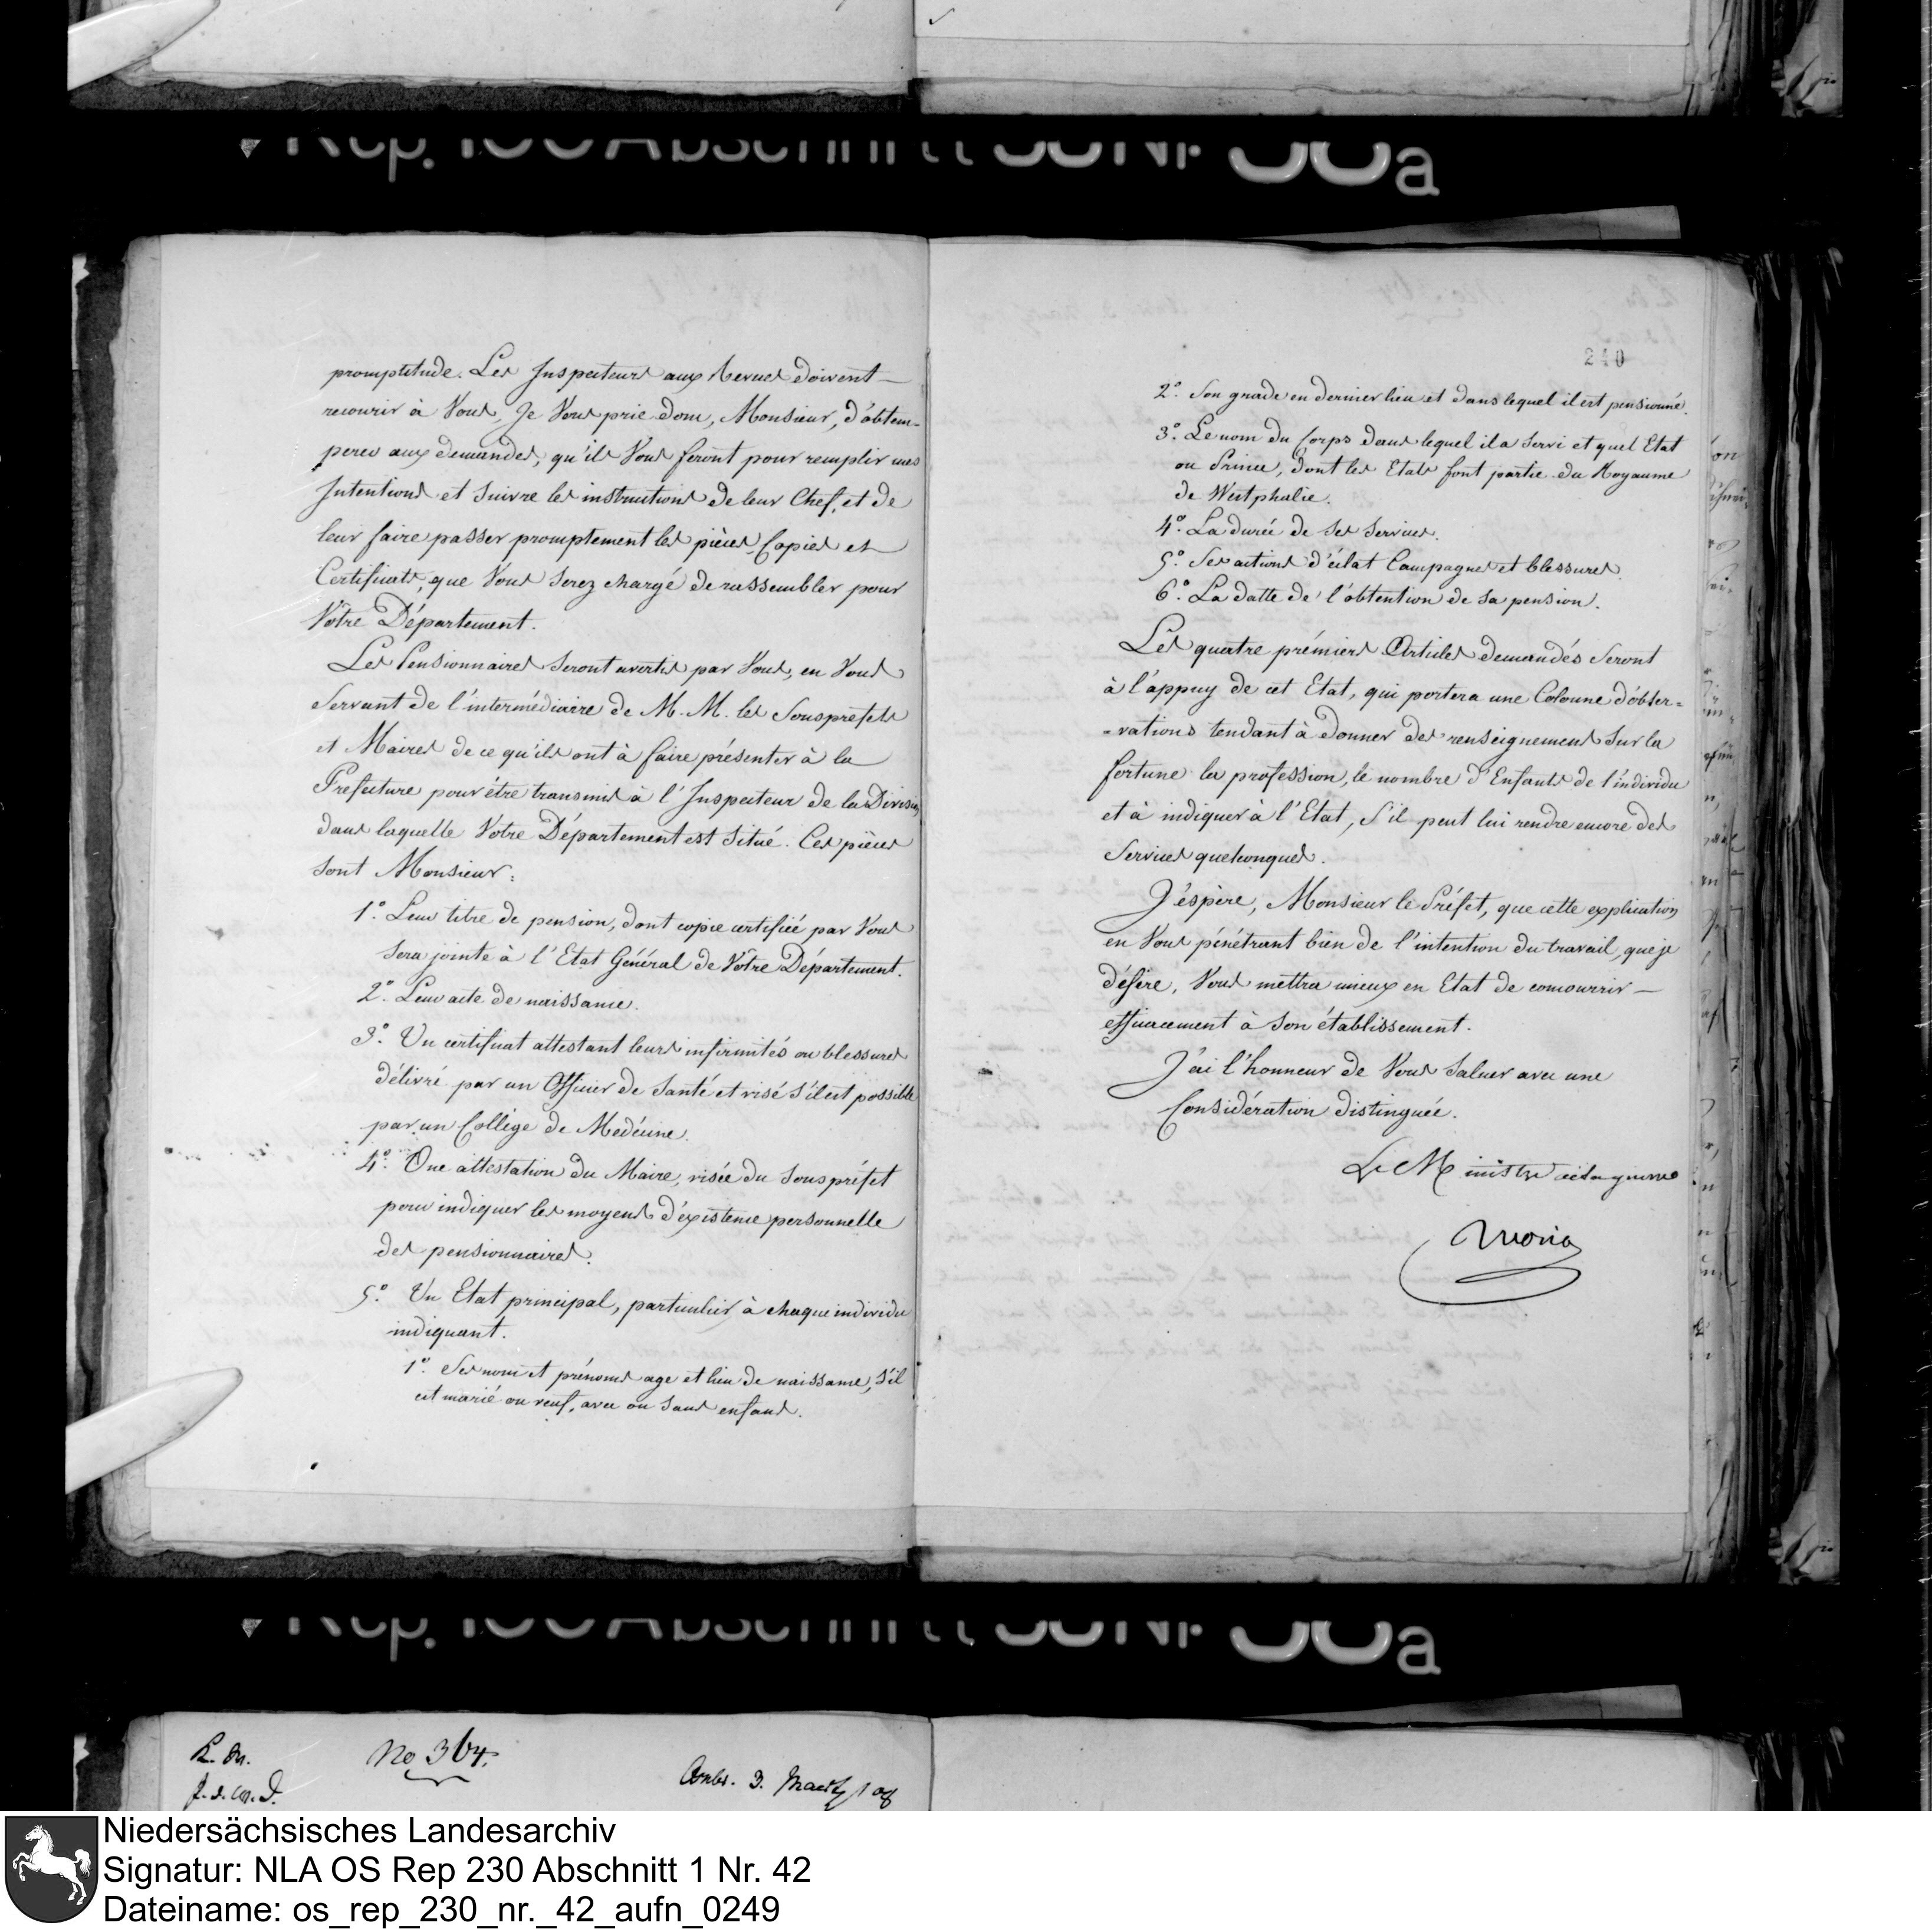 Rep. 100 Abschnitt
a
promptitude. Les Inspecteurs aux Revues doivent
recourir à Vous, Je Vous prie donc, Monsieur, d'obtem-
perer aux demandes, qu'ils Vous feront pour remplir mes
Intentions et suivre les instructions de leur Chef, et de
leur faire passer promptement les pièces, Copies et
Certificats, que Vous serez chargé de rassembler pour
Vôtre Département.
Les Pensionnaires seront avertis par Vous, en Vous
servant de l'intermédiaire de M. M. les Sousprefets
et Maires de ce qu'ils ont à faire présenter à la
Prefecture pour être transmis à l'Inspecteur de la Division,
dans laquelle Votre Département est situé. Ces pièces
sont Monsieur:
1º. Leur titre de pension, dont copie certifiée par Vous
sera jointe à l'Etat Général de Vôtre Département.
2º. Leur acte de naissance.
3º. Un certificat attestant leurs infirmités ou blessures
délivré par un Officier de Santé et visé s'il est possible
par un Collège de Medécine.
4º. Une attestation du Maire, visée du Souspréfet
pour indiquer les moyens d'éxistence personnelle
des pensionnaires.
5º. Un Etat principal, particulier à chaque individu
indiquant.
1º. Ses nom et prénoms age et lieu de naissance, s'il
est marié ou veuf, avec ou sans enfans.
240
2º. Son grade en dernier lieu et dans lequel il est pensionné.
3º. Le nom du Corps dans lequel il a servi et quel Etat
ou Prince, dont les Etats font partie du Royaume
de Westphalie.
4º. La durée de ses services.
5º. Ses actions d'éclat Campagnes et blessures.
6º. La datte de l'obtention de sa pension.
Les quatre prémiers Articles demandés seront
à l'appuy de cet Etat, qui portera une Colonne d'obser=
=vations tendant à donner des renseignemens sur la
fortune la profession, le nombre d'Enfants de l'individu
et à indiquer à l'Etat, s'il peut lui rendre encore des
services quelconques.
J'éspère, Monsieur le Préfet, que cette explication
en Vous pénétrant bien de l'intention du travail, que je
désire, Vous mettra mieux en Etat de concourrir
efficacement à son établissement.
J'ai l'honneur de Vous saluer avec une
Considération distinguée.
Le Ministre de la guerre
Morio
No 364.
3. Maertz 108
Niedersächsisches Landesarchiv
Signatur: NLA OS Rep 230 Abschnitt 1 Nr. 42
Dateiname: os_rep_230_nr._42_aufn_0249